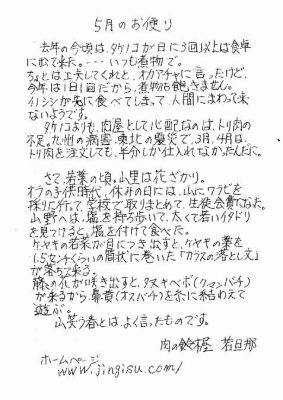 5月のお便り
去年の今頃は、タケノコが日に3回以上は食卓
に出て来た。---いつも煮物で。
ちょとは工夫してくれと、オカアチャに言ったけど、
今年は1日1回だから、煮物も飽きません。
イノシシが先に食べてしまって、人間にまわって来
ないようです。
タケノコよりも、肉屋として心配なのは、トリ肉の
不足。九州の病気、東北の震災で、3月、4月は、
トリ肉を注文しても、半分しか仕入れなかったんだに。
さて、若葉の頃。山里は花ざかり。
オラの子供時代、休みの日には、山にワラビを
採りに行って、学校で取りまとめて、生徒会費になった。
山野へは、塩を持ち歩いて、太くて若いイタドリ
を見つけると、塩を付けて食べた。
ケヤキの若葉が目につき出すと、ケヤキの葉を
1.5センチくらいの筒状に巻いた「カラスの落とし文」
が落ちて来る。
藤の花が咲き出すと、タヌキベボ(クマンバチ)
が来るから、鼻黄(オスバチ)を糸に結わえて
遊ぶ。
山笑う春とは、よく言ったものです。
肉の鈴木屋 若旦那
ホームページ
www.jingisu.com/